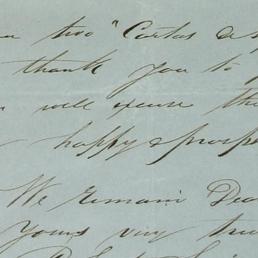 two "Cartas de
thank you to
will excuse the
happy & prosp
We remain Dea
Yours very tru